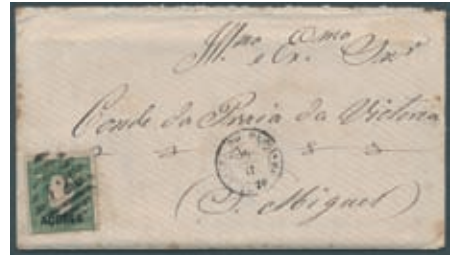 Ill.mo e Ex.mo Snr
Conde da Praia da Victoria
(S. Miguel)
AÇORES